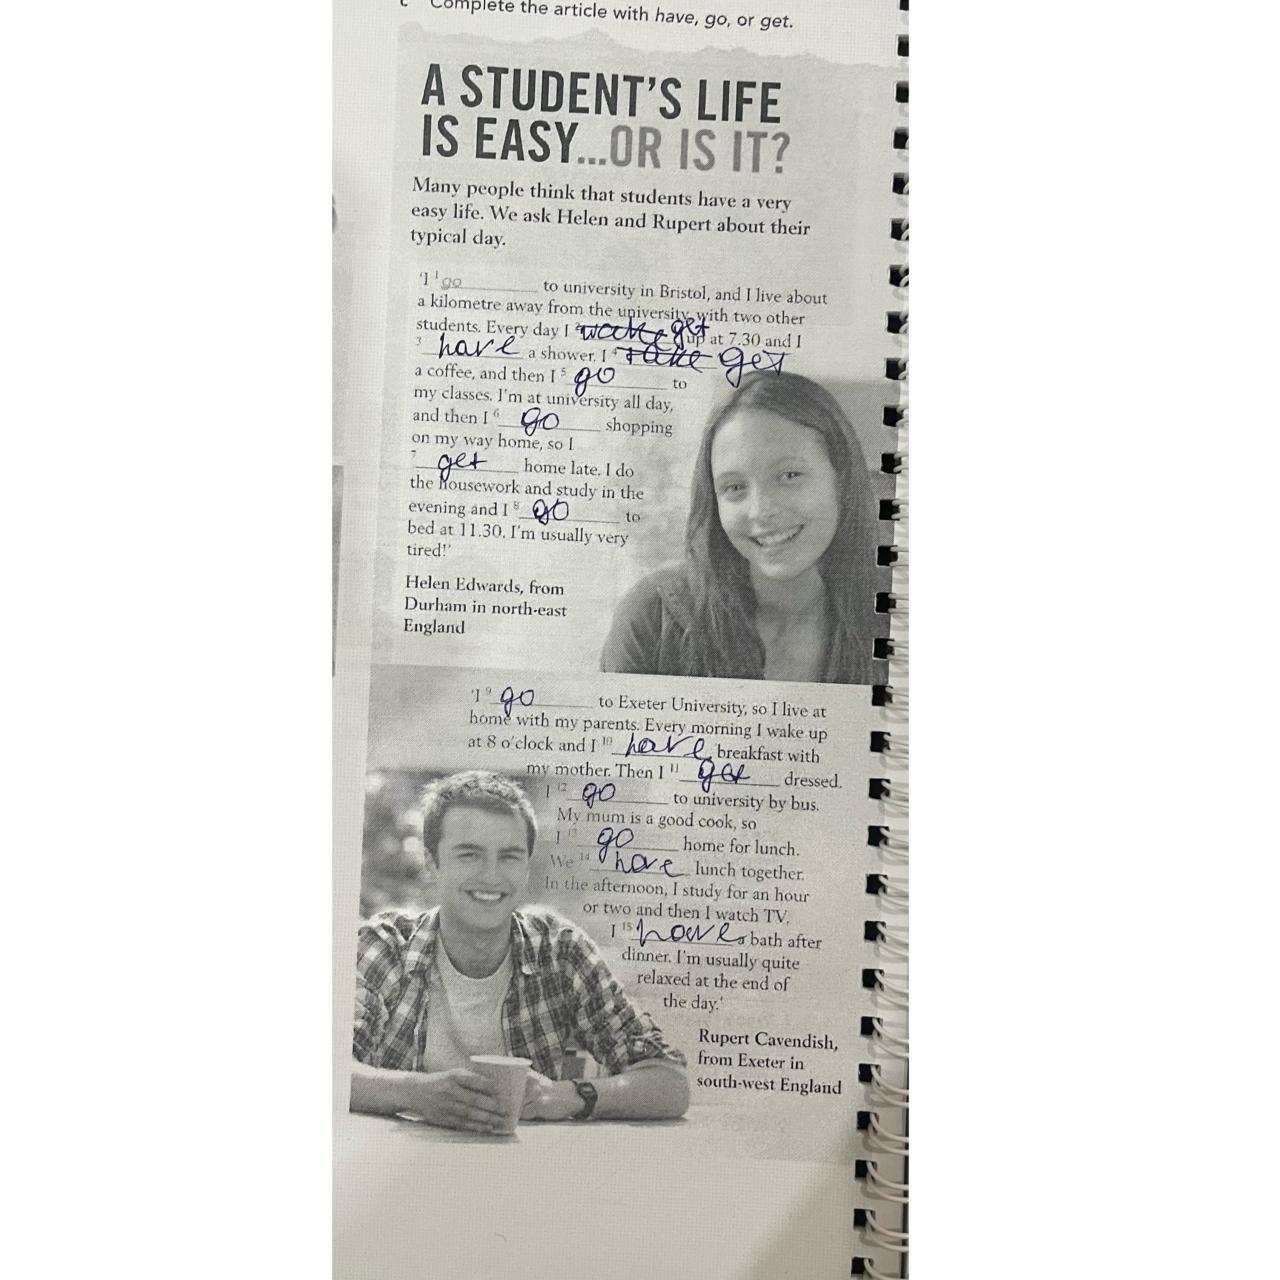 c Complete the article with have, go, or get.
A STUDENT'S LIFE
IS EASY...OR IS IT?
Many people think that students have a very
easy life. We ask Helen and Rupert about their
typical day.
'I 1 go to university in Bristol, and I live about
a kilometre away from the university with two other
students. Every day I 2 wake get up at 7.30 and I
3 have a shower. I 4 take get
a coffee, and then I 5 go to
my classes. I'm at university all day,
and then I 6 go shopping
on my way home, so I
7 get home late. I do
the housework and study in the
evening and I 8 go to
bed at 11.30. I'm usually very
tired!'
Helen Edwards, from
Durham in north-east
England
'I 9 go to Exeter University, so I live at
home with my parents. Every morning I wake up
at 8 o'clock and I 10 have breakfast with
my mother. Then I 11 get dressed.
I 12 go to university by bus.
My mum is a good cook, so
I 13 go home for lunch.
We 14 have lunch together.
In the afternoon, I study for an hour
or two and then I watch TV.
I 15 have a bath after
dinner. I'm usually quite
relaxed at the end of
the day.'
Rupert Cavendish,
from Exeter in
south-west England